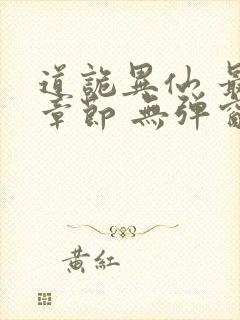 道詭異仙 最
章節 無彈窗
黃紅